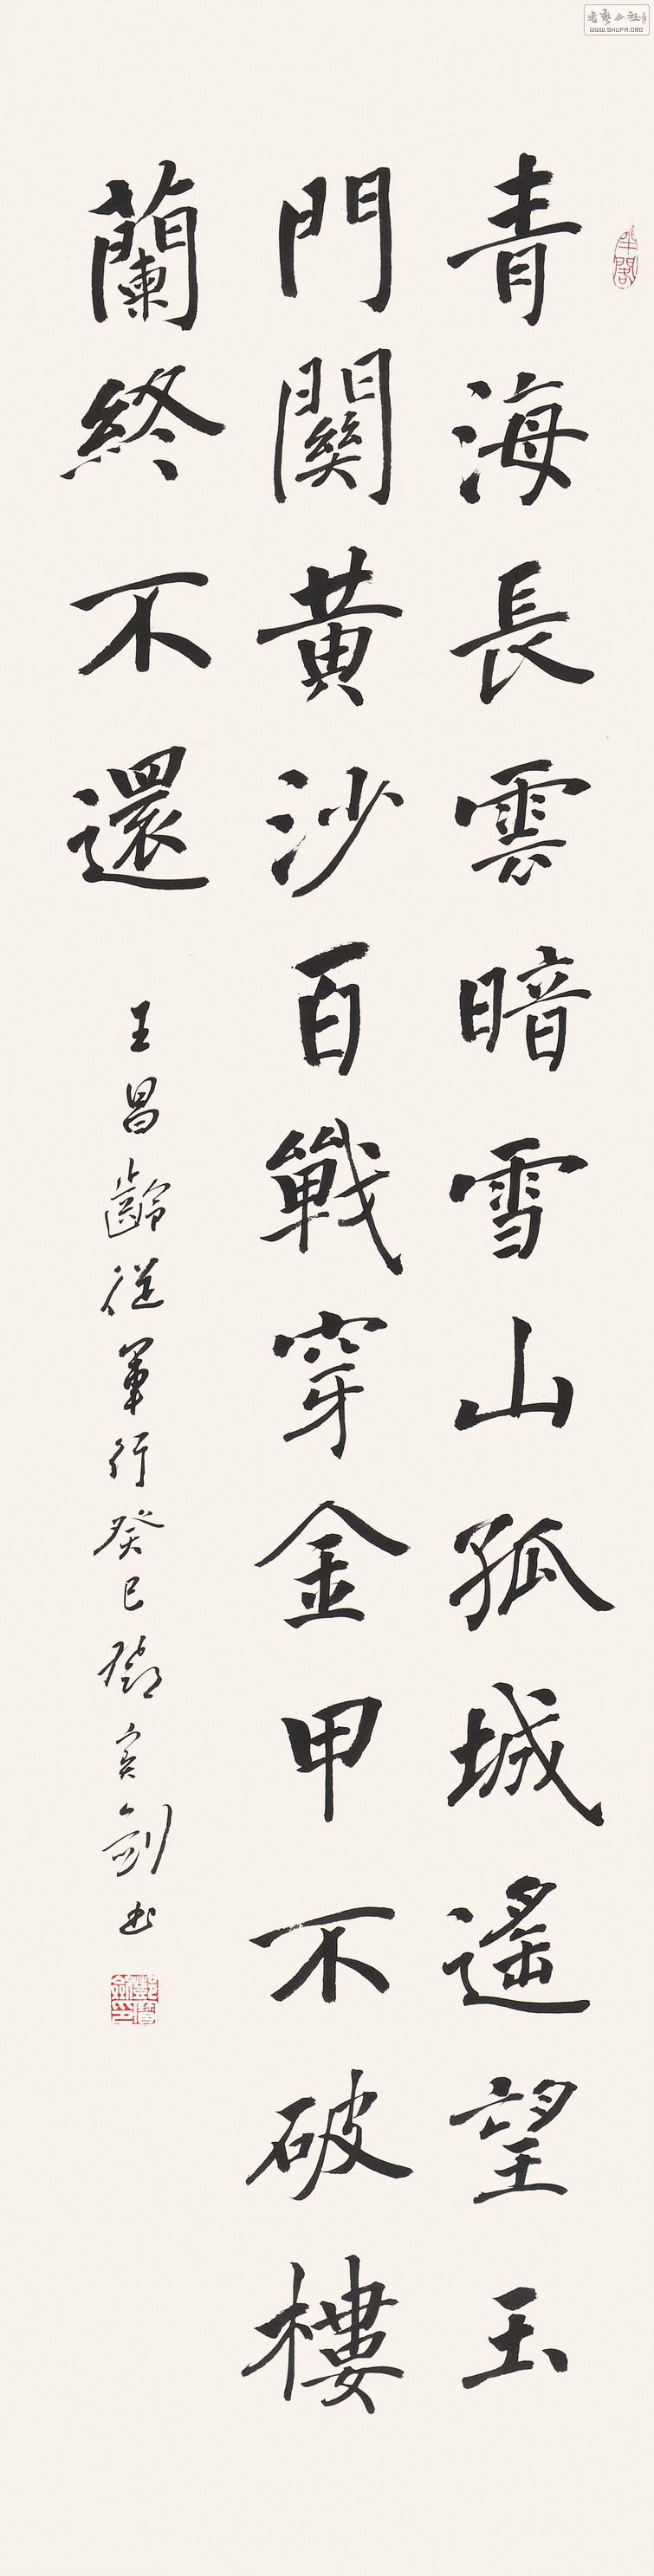 青海長雲暗雪山孤城遙望玉
門關黃沙百戰穿金甲不破樓
蘭終不還
王昌齡從軍行癸巳鄧寶劍書
WWW.SHUFA.ORG